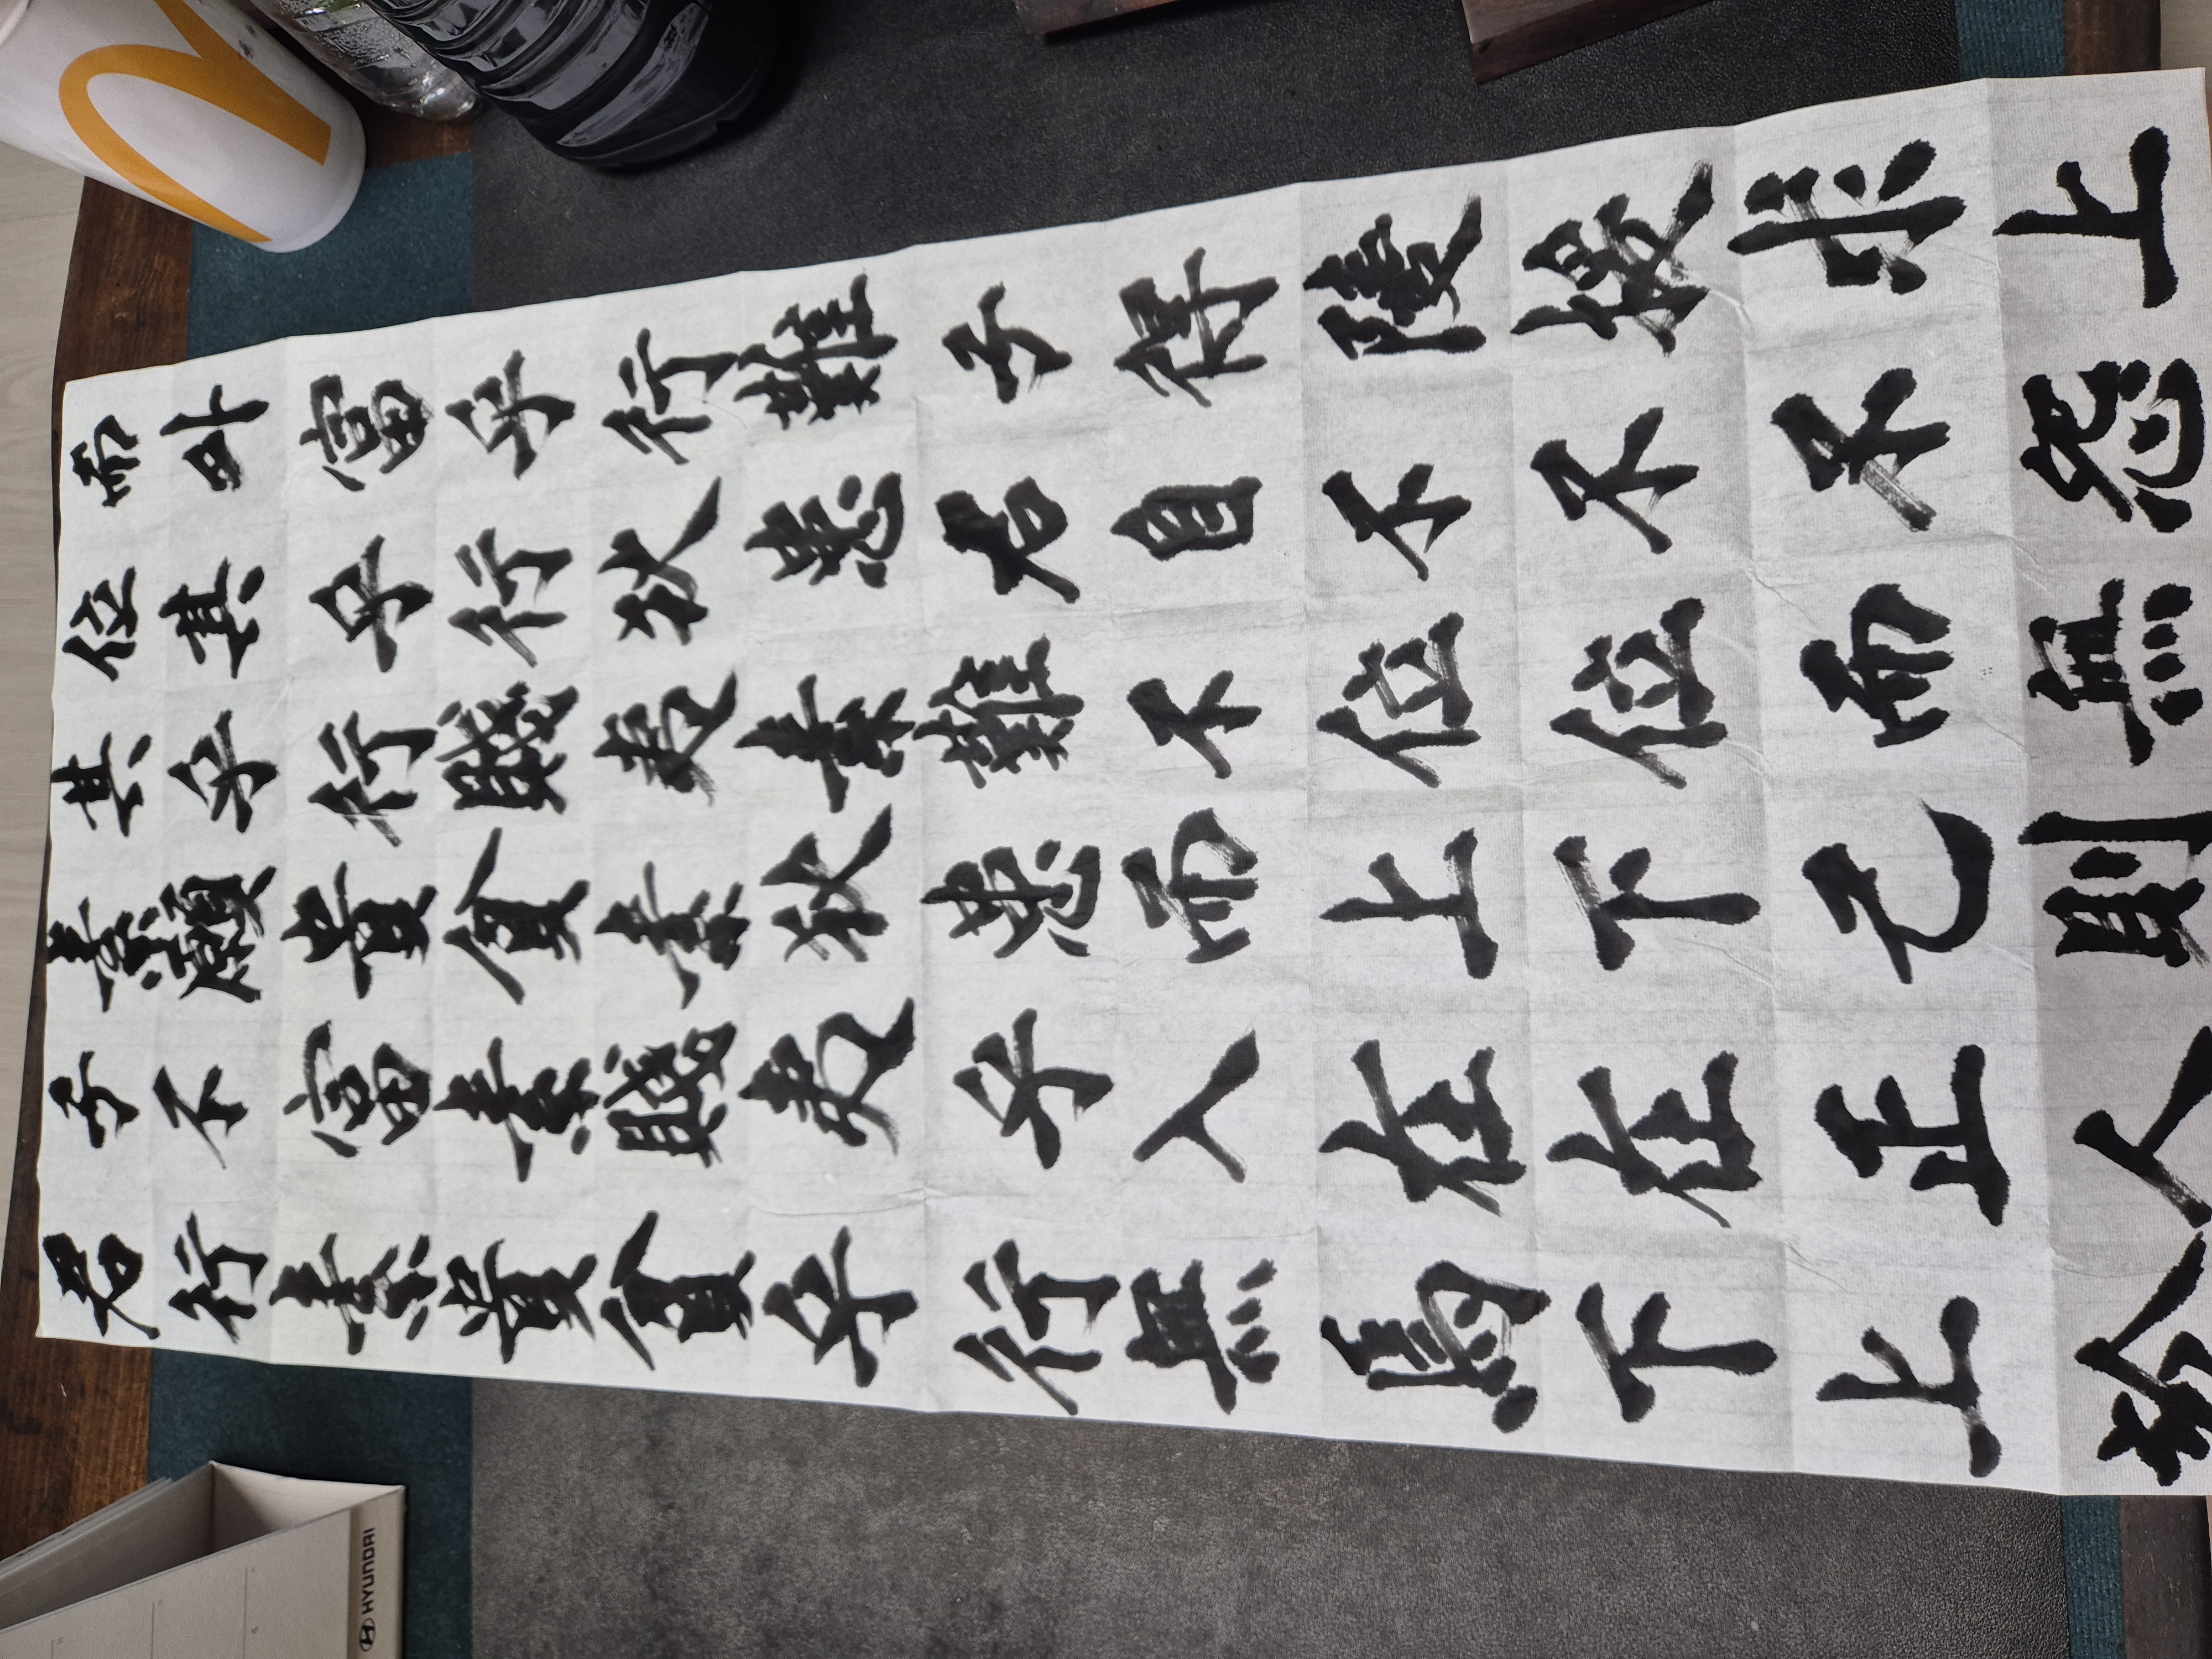 君子素其位而
行不願乎其外
素富貴行乎富
貴素貧賤行乎
貧賤素夷狄行
乎夷狄素患難
行乎患難君子
無入而不自得
焉在上位不陵
下在下位不援
上正己而不求
於人則無怨上
HYUNDAI